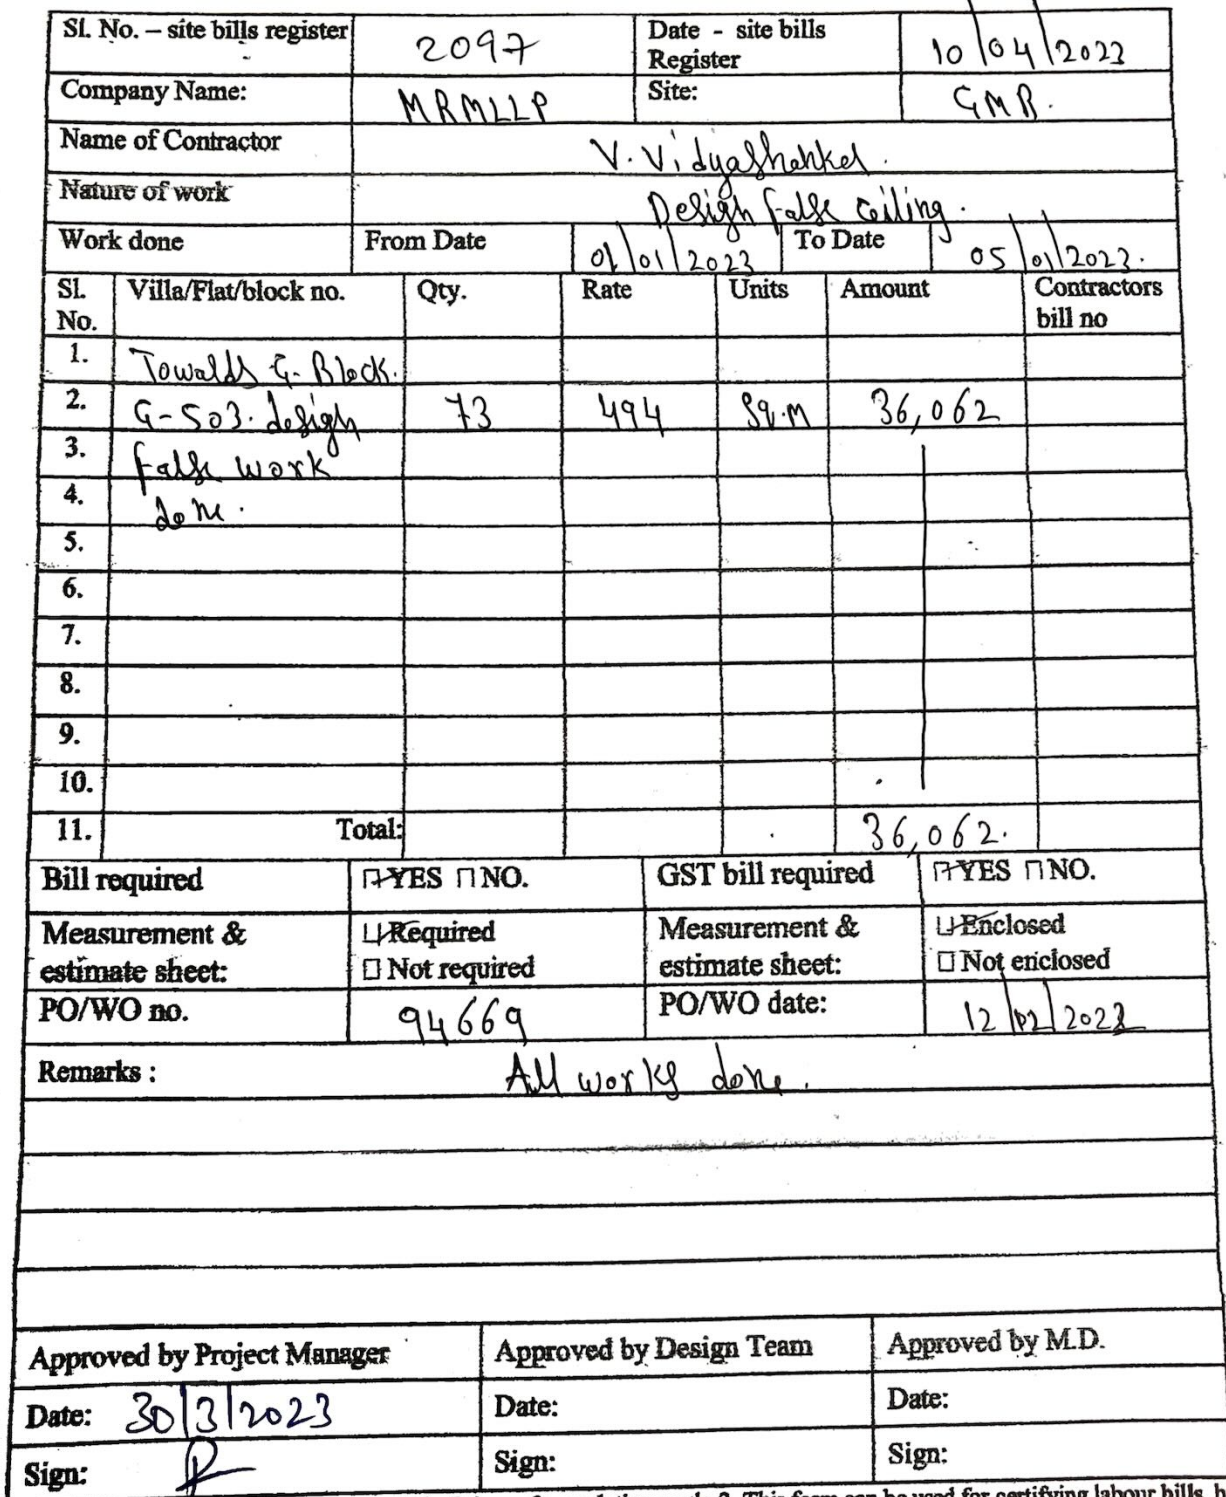 Sl. No. – site bills register 2097 Date - site bills Register 10/04/2023
Company Name: MRMLLP Site: GMR.
Name of Contractor V. Vidyashankar.
Nature of work Design false ceiling.
Work done From Date 01/01/2023 To Date 05/01/2023.
Sl. No. Villa/Flat/block no. Qty. Rate Units Amount Contractors bill no
1. Towards G-Block.
2. G-503. design 73 494 Sq.m 36,062
3. false work
4. done.
5.
6.
7.
8.
9.
10.
11. Total: 36,062.
Bill required YES NO. GST bill required YES NO.
Measurement & estimate sheet: Required Not required Measurement & estimate sheet: Enclosed Not enclosed
PO/WO no. 94669 PO/WO date: 12/02/2023
Remarks : All works done.
Approved by Project Manager Approved by Design Team Approved by M.D.
Date: 30/3/2023 Date: Date:
Sign: Sign: Sign:
This form can be used for certifying labour bills,